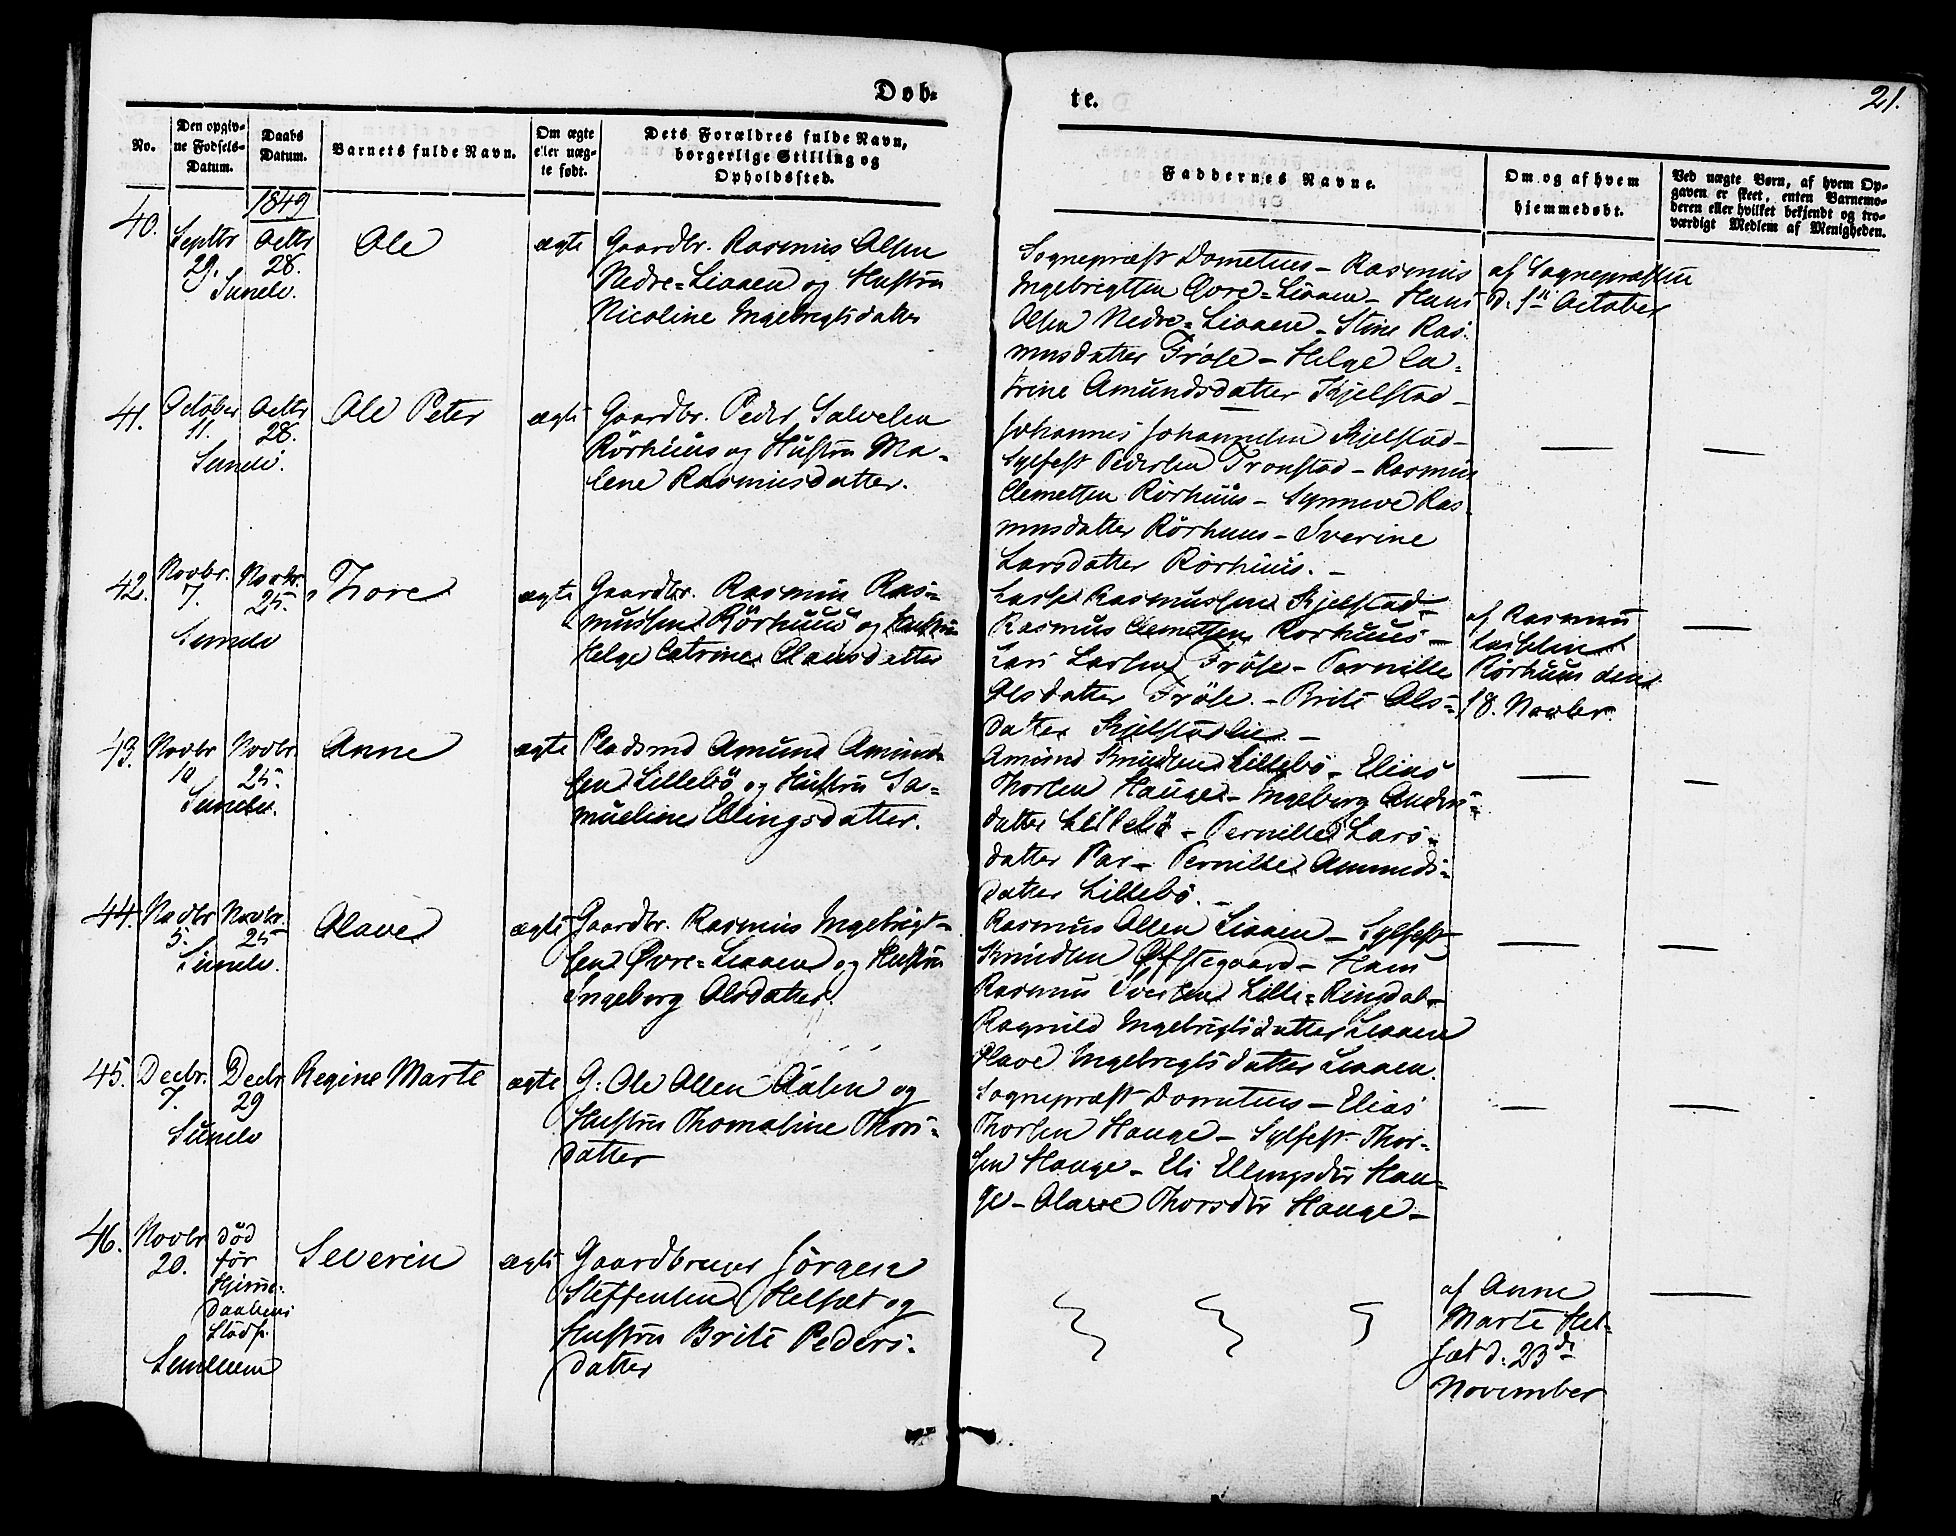 Døb-
te.
21.
No.
Den opgiv-
ne Fødsels-
Datum.
Daabs
Datum.
Barnets fulde Navn.
Om ægte
eller uæg-
te født.
Dets Forældres fulde Navn,
borgerlige Stilling og
Opholdssted.
Faddernes Navne.
Om og af hvem
hjemmedøbt.
Ved uægte Børn, af hvem Op-
gaven er skeet, enten Barnemo-
deren eller hvilket bekjendt og tro-
værdigt Medlem af Menigheden.
1849
40.
Septbr
29.
Octbr
28.
Sunelv.
Ole
ægte
Gaardbr. Rasmus Olsen
Nedre=Liaaen og Hustru
Nicoline Ingebregtsdatter
Sognepræst Dometius - Rasmus
Ingebrigtsen Øvre=Liaaen - Hans
Olsen Nedre=Liaaen - Stine Ras-
musdatter Frøse - Helge Ca-
trine Amundsdatter Kjelstad -
af Sognepræsten
October
41.
October
11.
Octbr
28.
Sunelv.
Ole Peter
ægte
Gaardbr. Peder Salvesen
Rørhuus og Hustru Ma-
lene Rasmusdatter.
Johannes Johannesen Kjelstad -
Sylfest Pedersen Tronstad - Rasmus
Clemetsen Rørhuus - Synneve Ras
musdatter Rørhuus - Sverine
Larsdatter Rørhuus. -
42.
Novbr.
7.
Novbr.
25.
Sunelv
Thore
ægte
Gaardbr. Rasmus Ras=
mussen Rörhuus og Hustru
Helge Catrine Clausdatter
Rasmussen Kjelstad -
Rasmus Clemetsen Rorhuus -
Lars Larsen Fröse - Pernille
Olsdatter Fröse. - Brite Ols=
datter Kjelstadlie. -
af Rasmus
Rörhuus den
18. Novbr.
43.
Novbr
10
Novbr.
25.
Sunelv.
Anne
ægte
Pladsmd Amund Amund
sen Lillebö og Hustru Sa=
mueline Ellingsdatter.
Amund Knudsen Lillebö - Elias
Thorsen Hauge - Ingeborg Anders=
datter Lillebö - Pernille Lars=
datter - Pernille Amunds=
datter Lillebö. -
44.
Novbr
5.
Novbr.
25
Sunelv.
Olave
ægte
Gaardbr. Rasmus Ingebrigt-
sen Øvre=Liaaen og Hustru
Ingeborg Olsdatter.
Rasmus Olsen Liaaen - Sylfest
Knudsen Ofstegaard - Hans
Rasmus Iversen Lille=Ringdal -
Ragnild Ingebrigtsdatter Liaaen
Olave Ingebregtsdatter Liaaen.
45.
Decbr.
7.
Decbr
29
Sunelv
Regine Marte
ægte
G: Ole Olsen og
Hustru Thomasine Thors-
datter
Sognepræst Dometius - Elias
Thorsen Hauge - Sylfest Thor-
sen Hauge - Eli Ellingsdtr Hau-
ge - Olave Thorsdtr Hauge -
46.
Novbr
20.
død
før
Hjemme-
Daabens
Stadf.
Severin
ægte
Gaardbruger Jörgen
Steffensen Helset og
Hustru Brite Peders-
datter
af Anne
Marte Hel-
set d: 23de
November